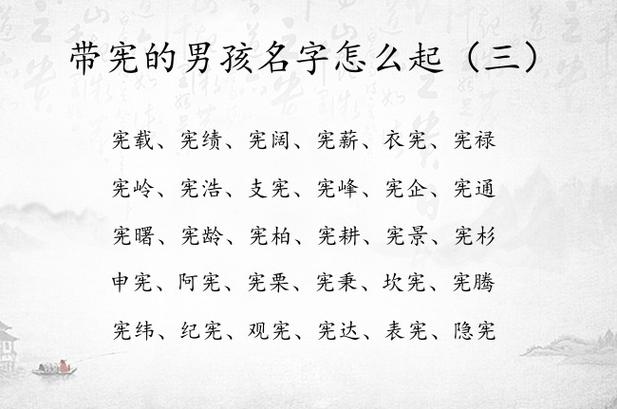 带宪的男孩名字怎么起（三）
宪载、宪绩、宪阔、宪薪、衣宪、宪禄
宪岭、宪浩、支宪、宪峰、宪企、宪通
宪曙、宪龄、宪柏、宪耕、宪景、宪杉
申宪、阿宪、宪栗、宪秉、坎宪、宪腾
宪纬、纪宪、观宪、宪达、表宪、隐宪